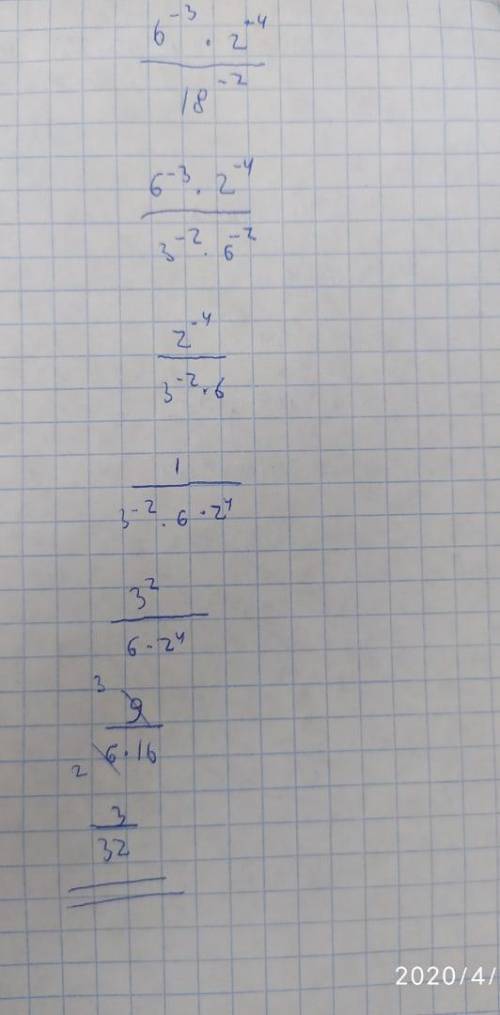 6⁻³ · 2⁻⁴
18⁻²
6⁻³ · 2⁻⁴
3⁻² · 6⁻²
2⁻⁴
3⁻² · 6
1
3⁻² · 6 · 2⁴
3²
6 · 2⁴
3
9
2 6 · 16
3
32
2020/4/